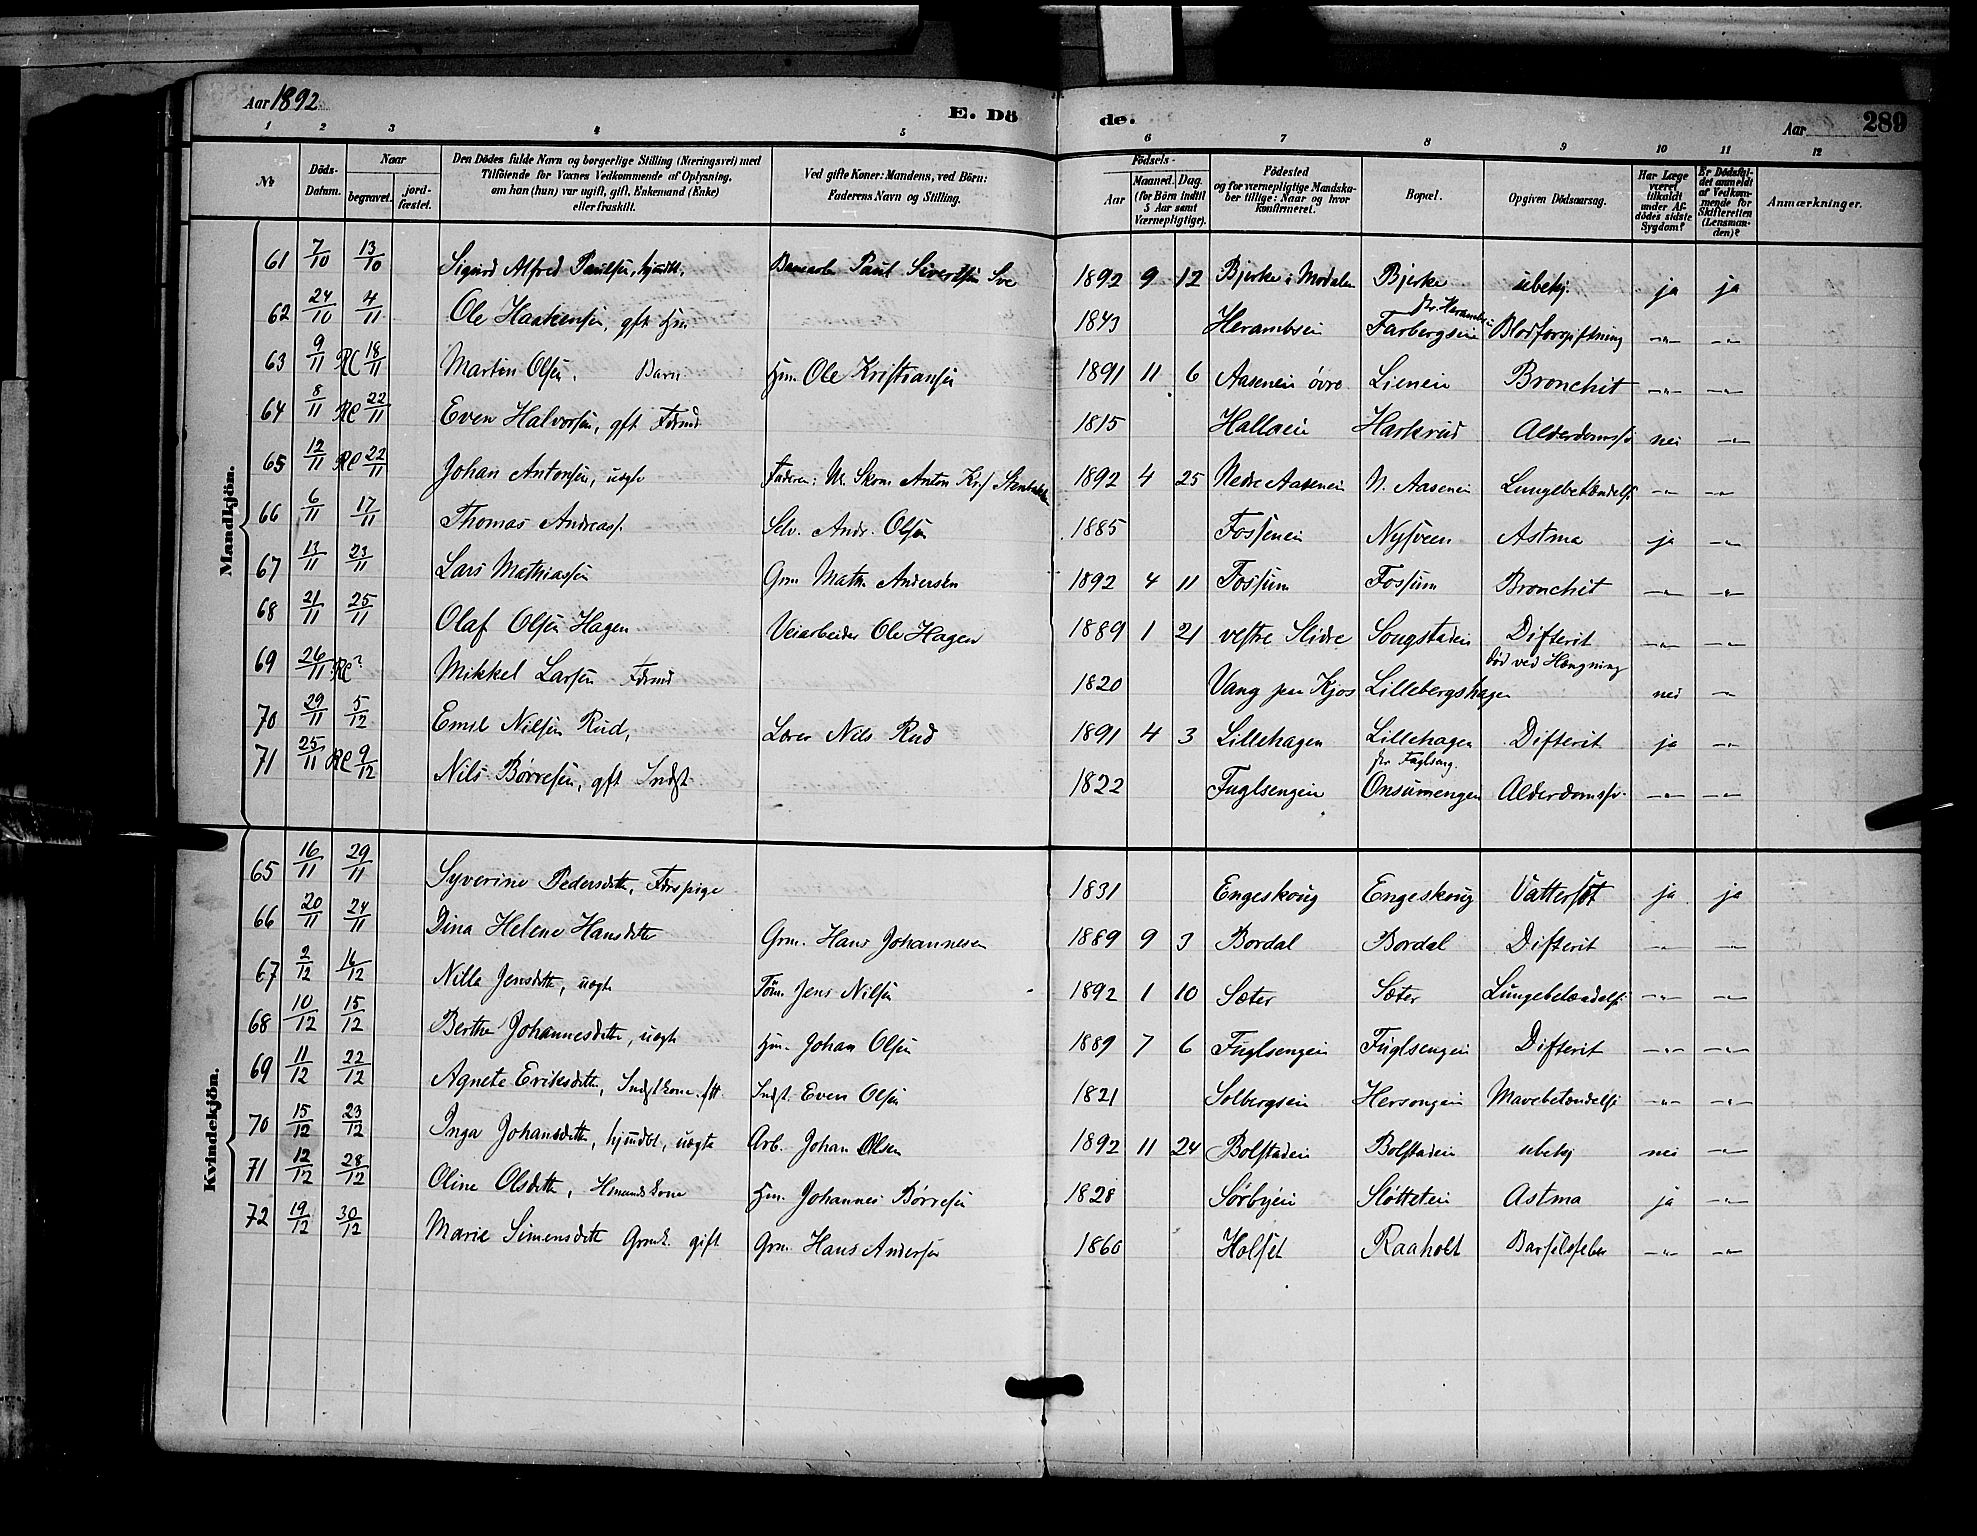 Aar 1892
E. Dö de.
Aar 289
1 2 3 4 5 6 7 8 9 10 11 12
No
Döds-Datum.
Naar
begravet.
jord-fæstet.
Den Dödes fulde Navn og borgerlige Stilling (Næringsvei) med
Tilföiende for Voxnes Vedkommende af Oplysning,
om han (hun) var ugift, gift, Enkemand (Enke)
eller fraskilt.
Ved gifte Koner: Mandens, ved Börn:
Faderens Navn og Stilling.
Födsels-
Aar
Maaned. Dag.
(for Börn indtil
5 Aar samt
Værnepligtige).
Födested
og for værnepligtige Mandska-
ber tillige: Naar og hvor
konfirmeret.
Bopæl.
Opgiven Dödsaarsag.
Har Læge
været
tilkaldt
under Af-
dödes sidste
Sygdom?
Er Dödsfal-
det anmeldt
af Vedkom-
mende for
Skifteretten
(Lensman-
den)?
Anmærkninger.
Mandkjön.
61 7/10 13/10 Sigurd Alfred Paulsen, hjemdbt. Paul Sivertsen Sve 1892 9 12 Bjerke i Modalen Bjerke ubekj. ja ja
62 24/10 4/11 Ole Haakensen, gft Hm 1843 Herambseie Farbergseie Blodforgiftning -"- -"-
63 9/11 Rl 18/11 Martin Olsen. Barn Hm. Ole Kristiansen 1891 11 6 Aaseneie övre Lieneie Bronchit -"- -"-
64 8/11 Rl 22/11 Even Halvorsen, gft Fdrmd 1815 Halleie Harkrud Alderdomssv nei -"-
65 12/11 Rl 22/11 Johan Antonsen, uægte Faderen: Anton 1892 4 25 Nedre Aaseneie N. Aaseneie Lungebetændelse -"- -"-
66 6/11 17/11 Thomas Andreass. Selv. Andr. Olsen 1885 Fosseneie Nysveen Astma ja -"-
67 13/11 23/11 Lars Mathiassen Grm Math Andersen 1892 4 11 Fossum Fossum Bronchit -"- -"-
68 21/11 25/11 Olaf Olsen Hagen Veiarbeider Ole Hagen 1889 1 21 vestre Slidre Songstadeie Difterit -"- -"-
69 26/11 Rl ? Mikkel Larsen Fdrmd 1820 Vang paa Lillebergshagen död ved Hængning nei -"-
70 29/11 5/12 Emil Nilsen Rud, Lærer Nils Rud 1891 4 3 Lillehagen Lillehagen Difterit ja -"-
71 25/11 Rl 9/12 Nils Börresen, gft Indst 1822 Fuglsengeie Onsumengen fr Fuglseng. Alderdomssv. -"- -"-
Kvindekjön.
65 16/11 29/11 Syverine Pedersdtr, Fdrspige 1831 Engeskoug Engeskoug Vattersot ja ja
66 20/11 24/11 Dina Helene Hansdtr Grm. Hans Johannesen 1889 9 3 Bordal Bordal Difterit -"- -"-
67 2/12 14/12 Nilla Jensdtr, uægte Töm. Jens Nilsen 1892 1 10 Sæter Sæter Lungebetændelse -"- -"-
68 10/12 15/12 Berthe Johannesdtr, uægt Hm. Johan Olsen 1889 7 6 Fuglsengeie Fuglsengeie Difterit -"- -"-
69 11/12 22/12 Agnete Eriksdtr, Indstkone. Indst. Even Olsen 1821 Solbergseie Hersongeie Mavebetændelse -"- -"-
70 15/12 23/12 Inga Johansdtr, hjemdbt, uægte Arb. Johan Olsen 1892 11 24 Bolstadeie Bolstadeie ubekj nei -"-
71 12/12 28/12 Oline Olsdtr, Hmandskone Hm. Johannes Börresen 1828 Sörbyeie Slötteteie Astma ja -"-
72 19/12 30/12 Marie Simensdtr Grmk. gift Grm. Hans Andersen 1860 Holset Raaholt Barselsfeber -"- -"-